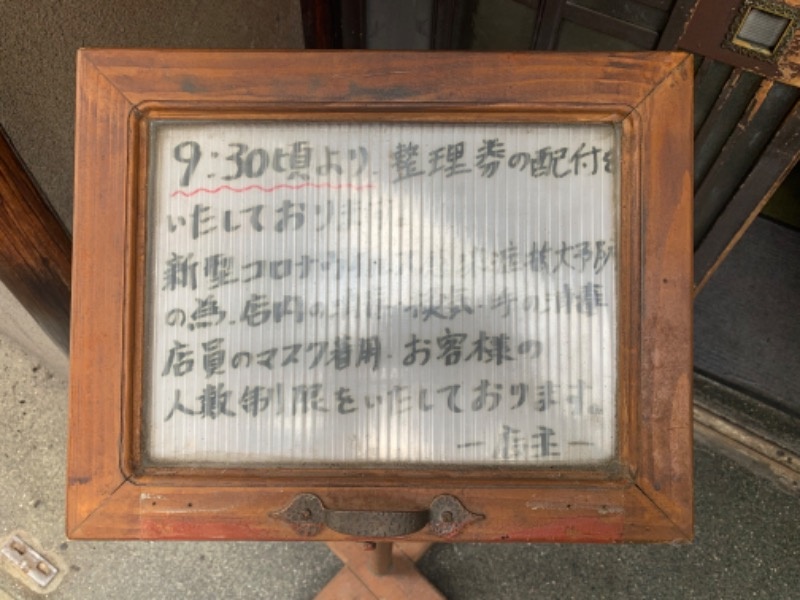 9:30頃より.整理券の配付を
いたしております。
新型コロナウイルス感染症拡大予防
の為.店内の消毒・換気・手の消毒
店員のマスク着用.お客様の
人数制限をいたしております。
ー店主ー